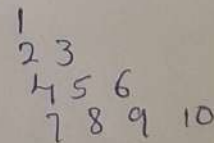 1
2 3
4 5 6
7 8 9 10